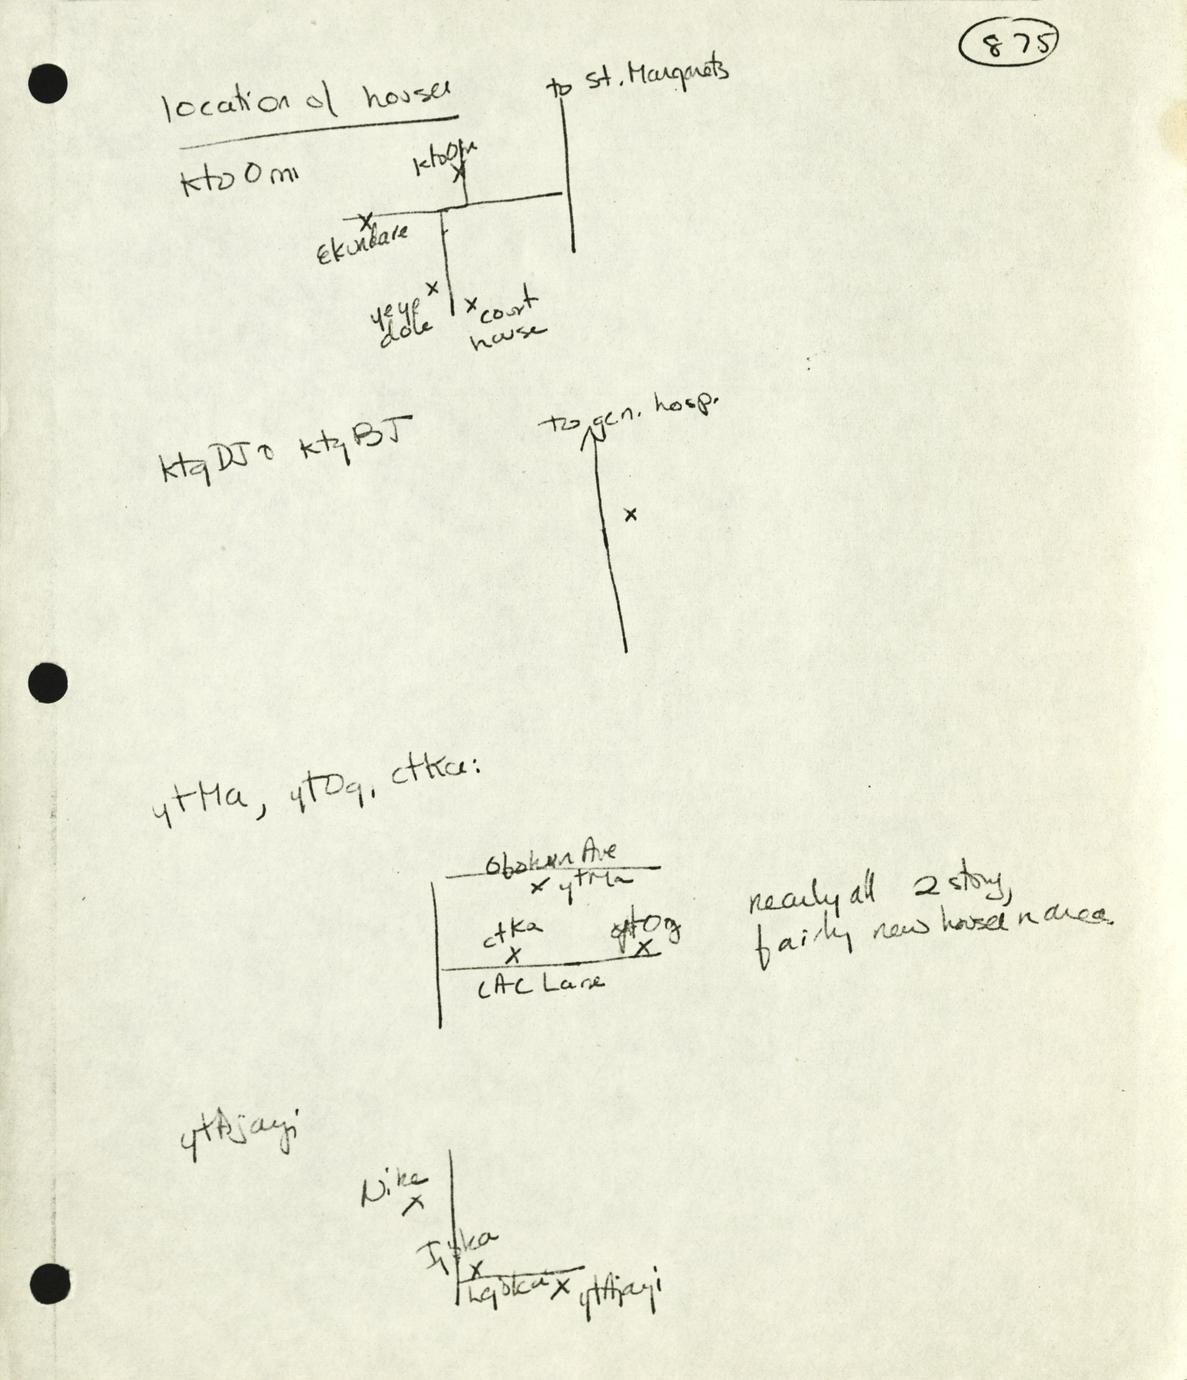 875
location of houses
to St. Margarets
ktoOmi
ktoOm
x
x
Ekundare
x
yeye
dole
x court
house
ktqDJo ktqBJ
to gen. hosp.
x
ytMa, ytOg, ctka:
Obokun Ave
x ytMa
ctka
x
ytOg
x
CAC Lane
nearly all 2 story,
fairly new houses in area
ytAjayi
Nike
x
x
x ytAjayi